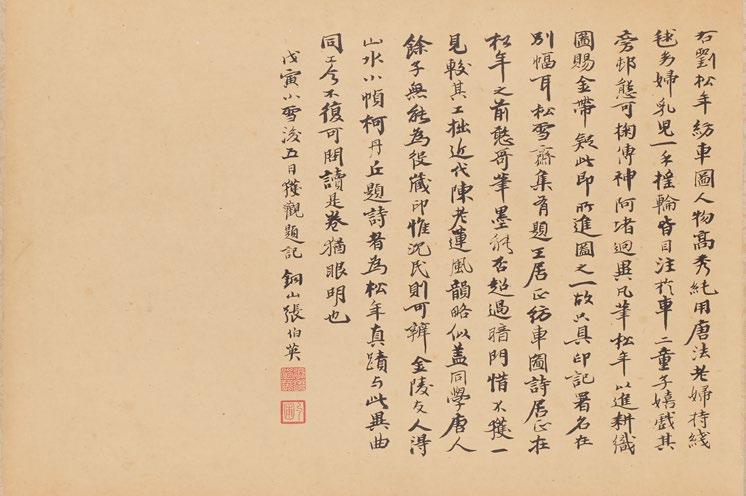 右劉松年紡車圖人物高秀純用唐法老婦持綫
毬少婦乳児一手搖輪皆目注於車二童子嬉戲其
旁邨態可掬傳神阿堵迥異凡筆松年以進耕織
圖賜金帶疑此即所進圖之一故只具印記署名在
別幅耳松雪齋集有題王居正紡車圖詩居正在
松年之前憨哥筆墨能否超過暗門惜不獲一
見較其工拙近代陳老蓮風韻略似盖同學唐人
餘子無能為役藏印惟沈氏則可辨金陵友人得
山水小幀柯丹丘題詩者為松年真蹟与此異曲
同工今不復可閱讀是卷猶眼明也
戊寅小雪後五日獲觀題記 銅山張伯英